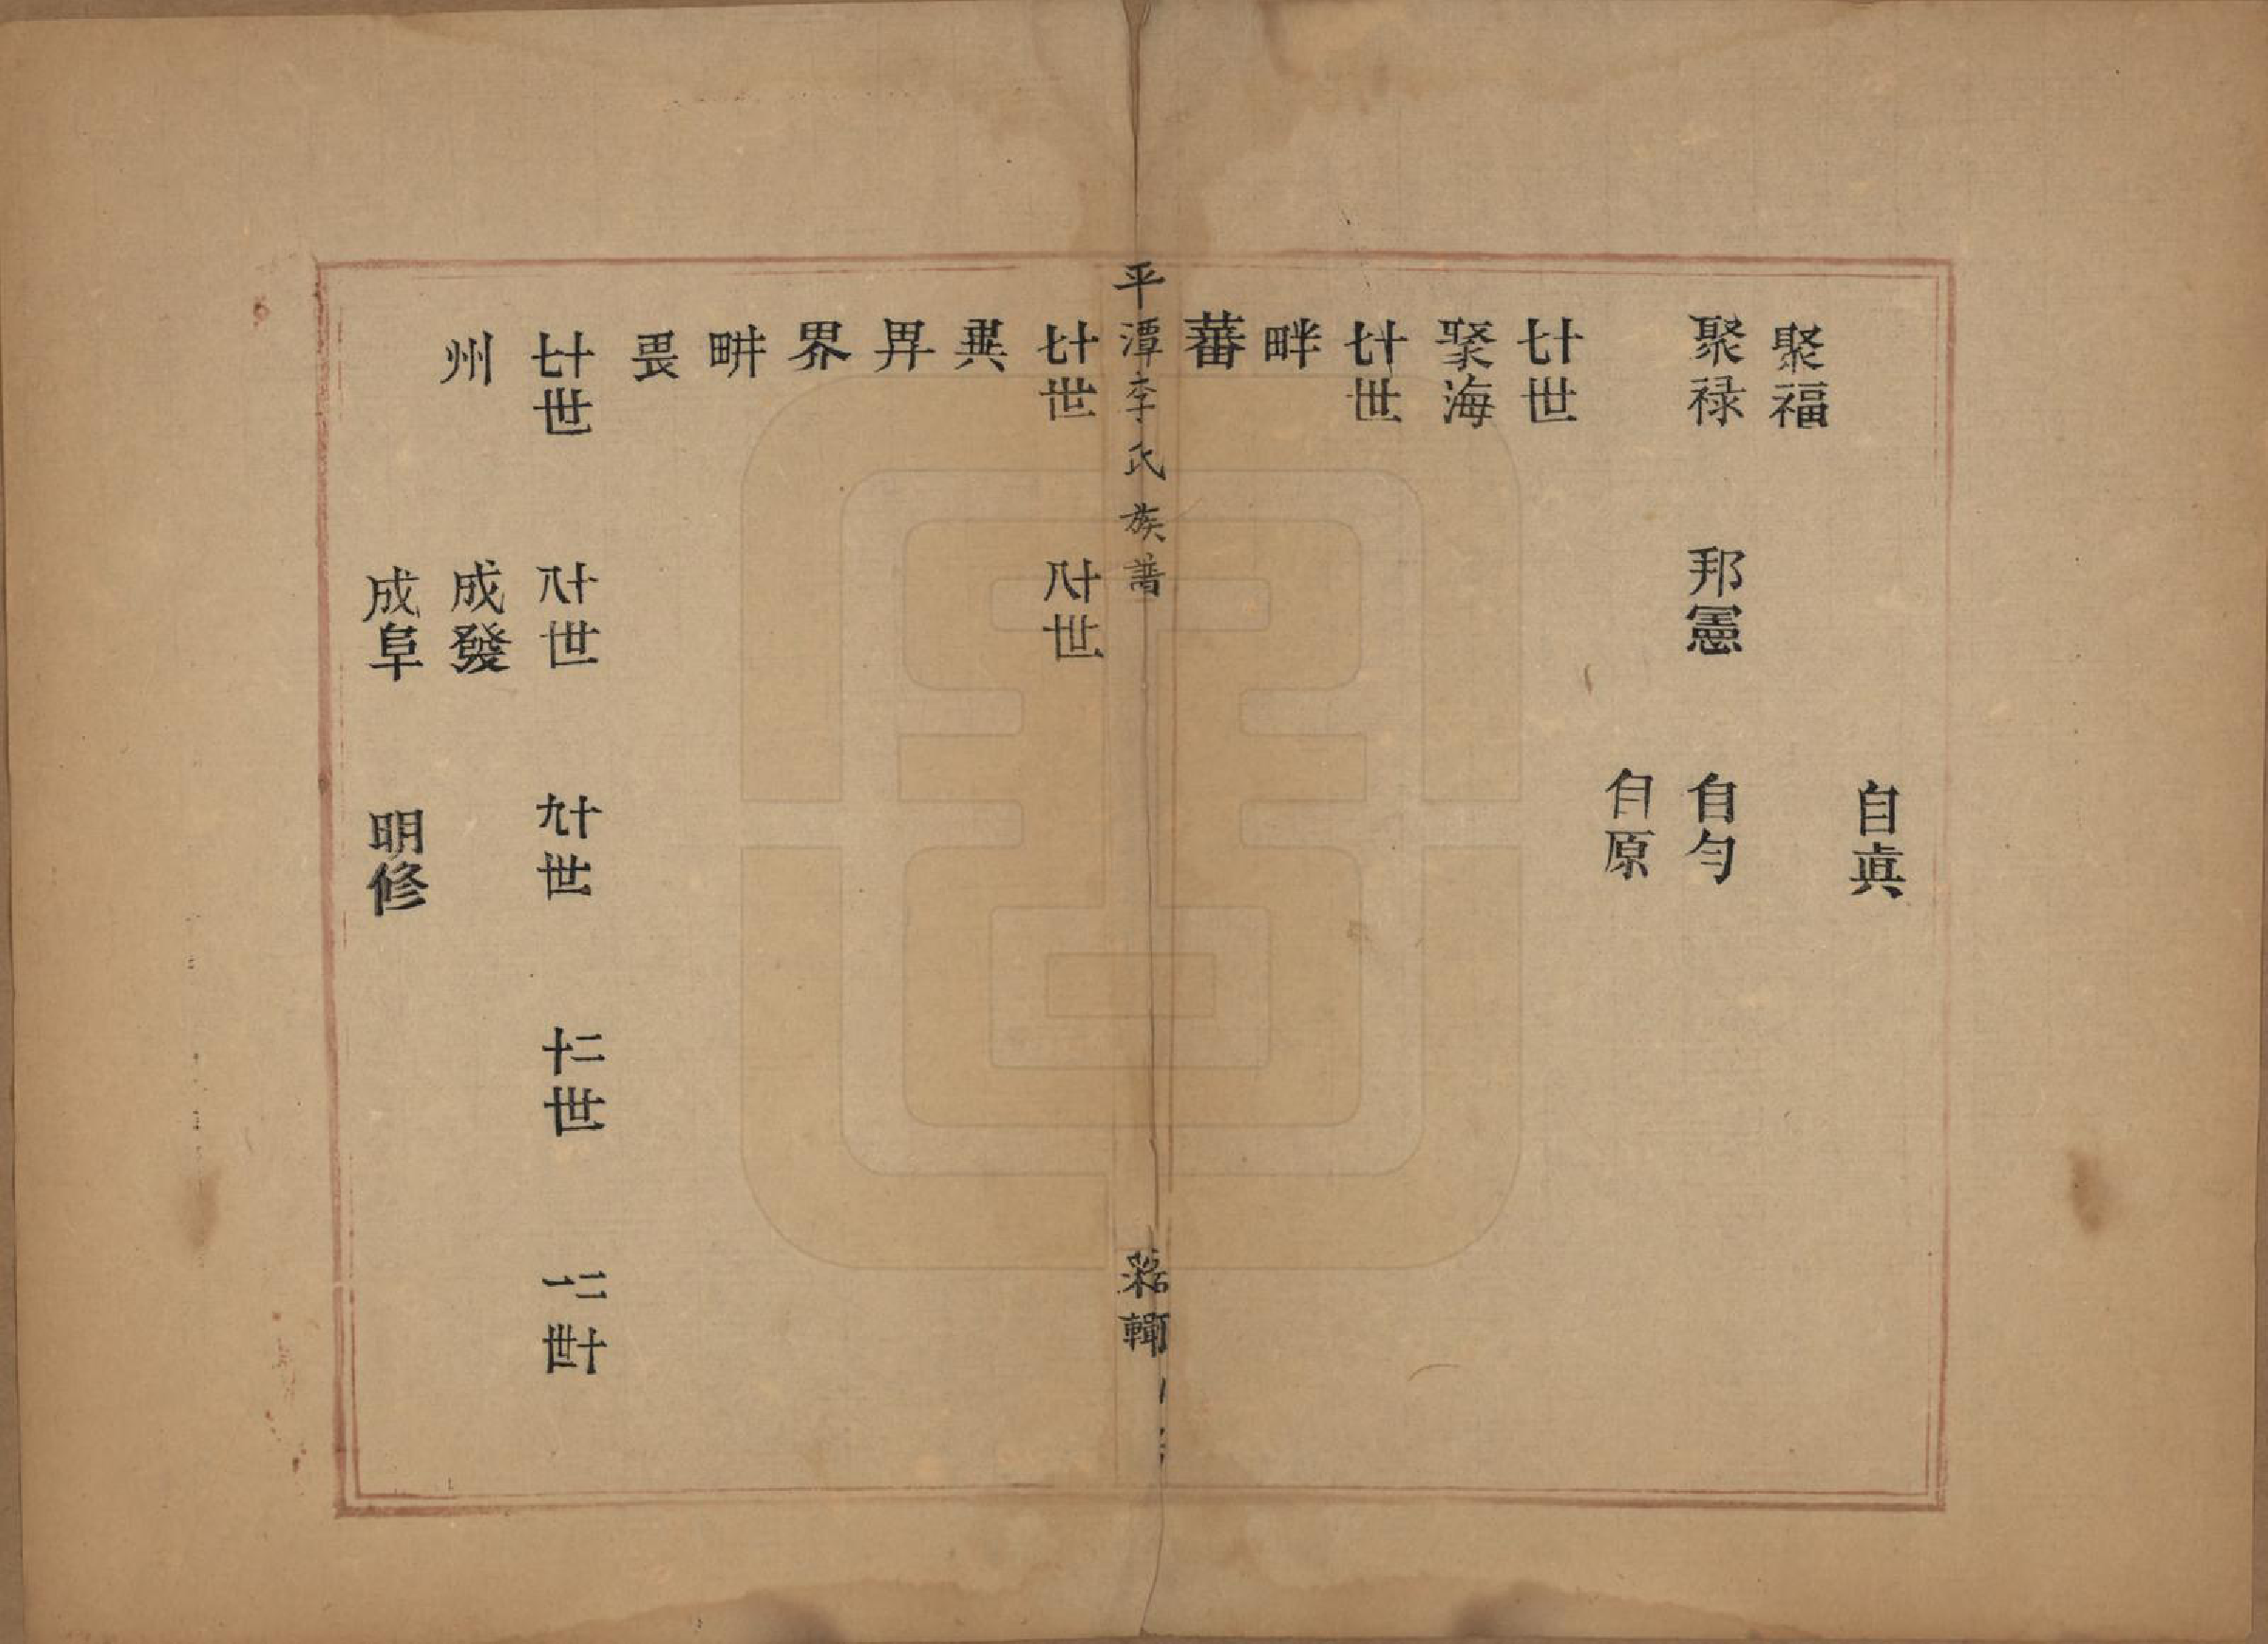 自眞
聚福
聚禄 邦憲 自勻
自原
十七世
聚海
十七世
畔
蕃
平潭李氏族譜
十七世 十八世
異
畁
界
畊
畏
十七世 十八世 十九世 二十世 二十一世
州 成發
成阜 明修